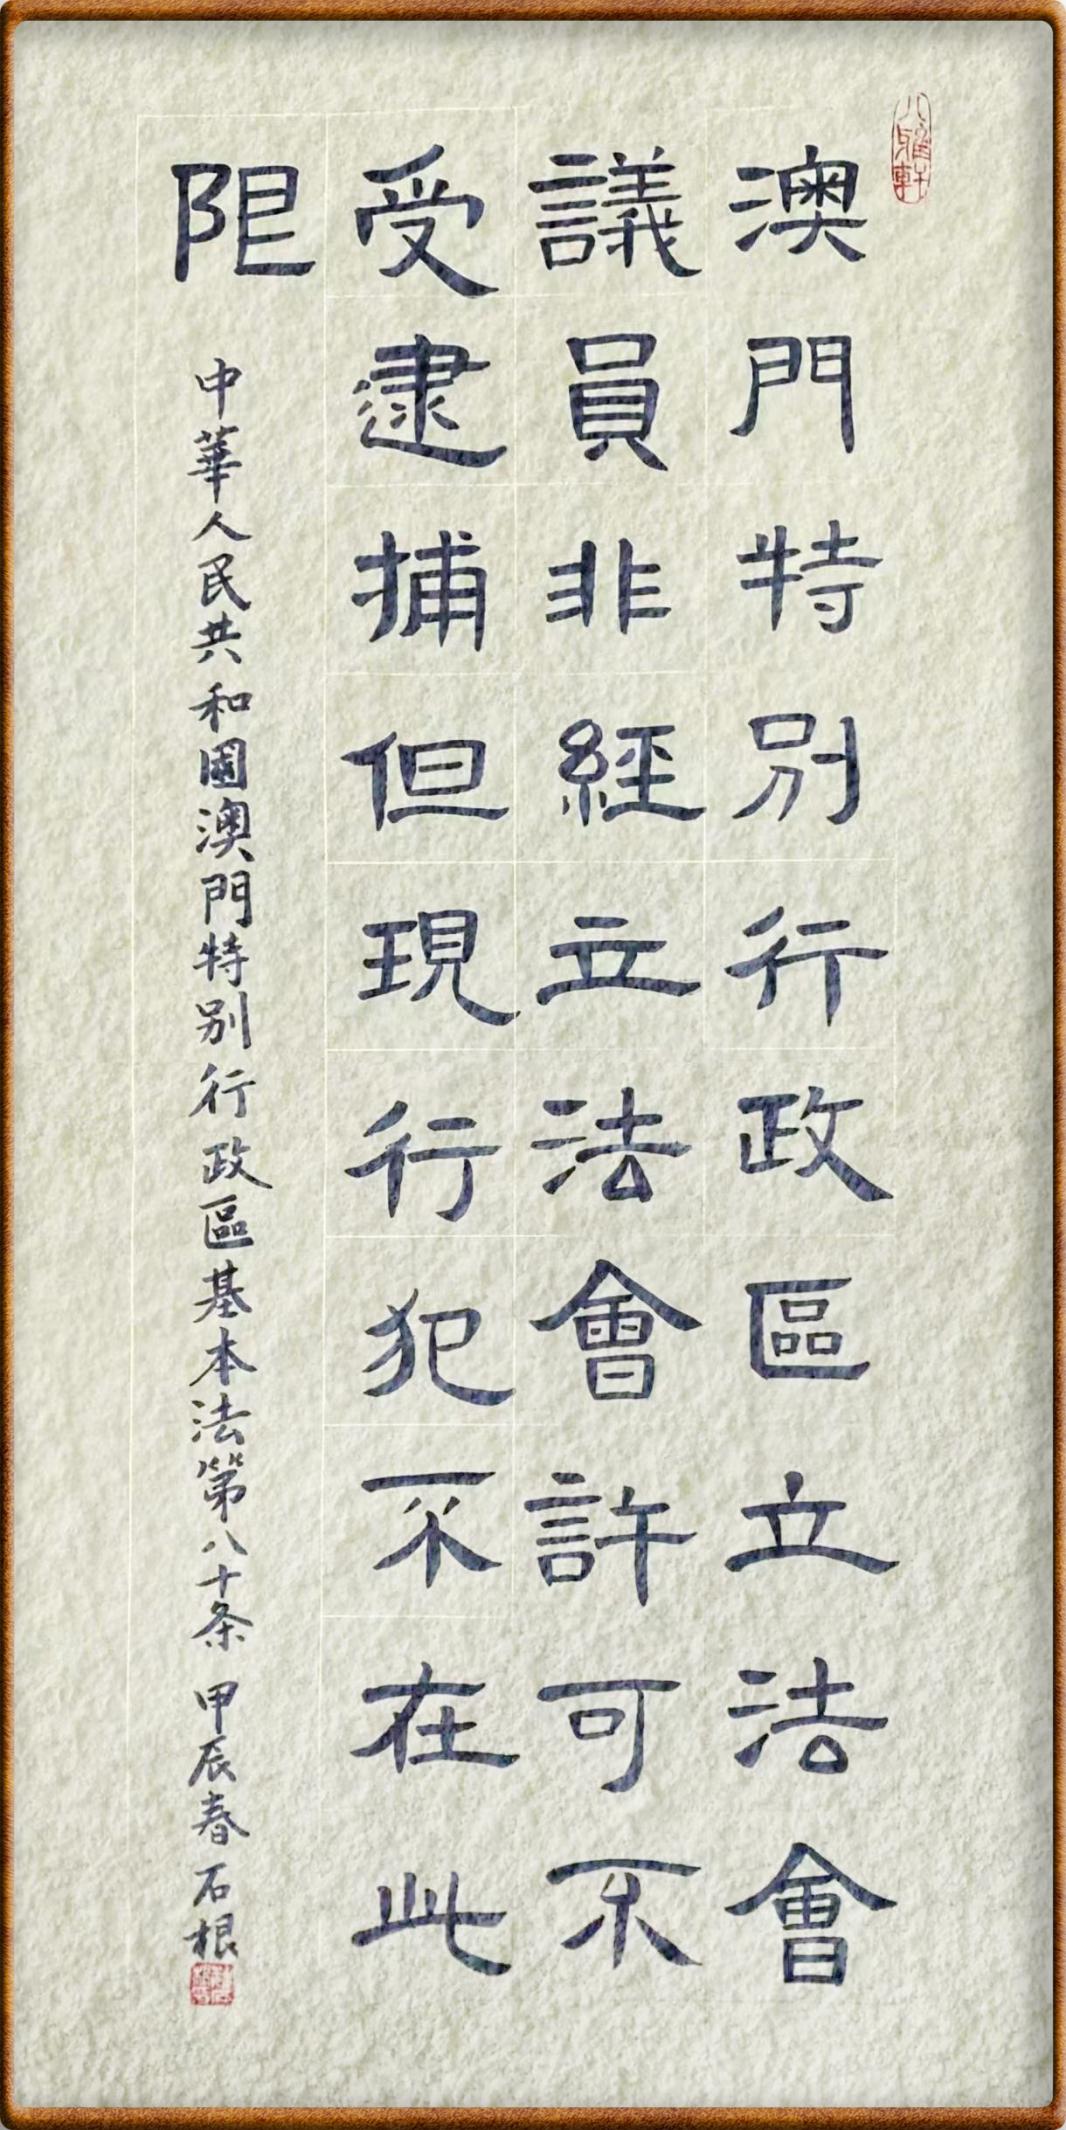 八雅軒
澳門特別行政區立法會
議員非經立法會許可不
受逮捕但現行犯不在此
限
中華人民共和國澳門特別行政區基本法第八十条 甲辰春 石根